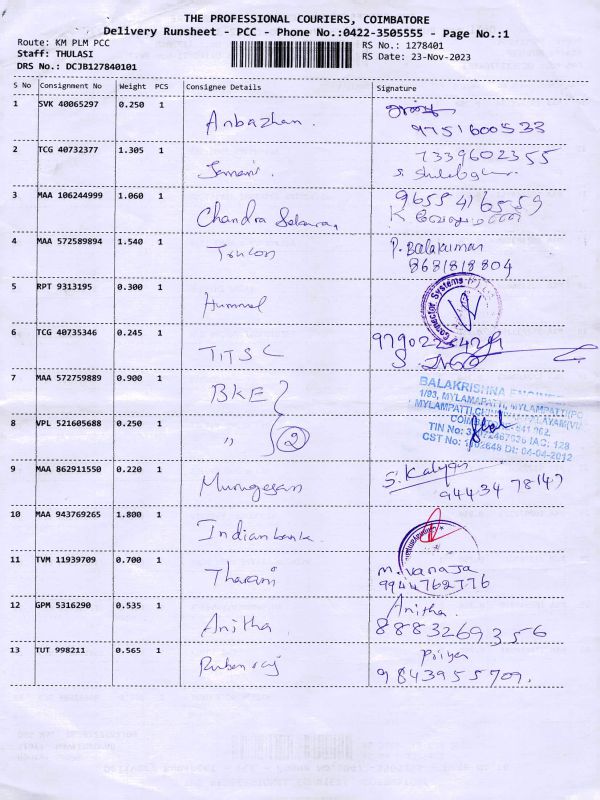 THE PROFESSIONAL COURIERS, COIMBATORE
Delivery Runsheet - PCC - Phone No.:0422-3505555 - Page No.:1
Route: KM PLM PCC
RS No.: 1278401
Staff: THULASI
RS Date: 23-Nov-2023
DRS No.: DCJB127840101
S No Consignment No Weight PCS Consignee Details Signature
1 SVK 40065297 0.250 1 Anbazhan.
9751600533
2 TCG 40732377 1.305 1
7339602355
3 MAA 106244999 1.060 1 Chandra
9655416559
K
4 MAA 572589894 1.540 1
P. Balakumar
8681818804
5 RPT 9313195 0.300 1 Hummel
Connector Systems (P)
6 TCG 40735346 0.245 1 TITSC
S.
7 MAA 572759889 0.900 1 BKE
BALAKRISHNA
1/93, MYLAMPATTI, MYLAMPATTI(PO
8 VPL 521605688 0.250 1 〃 2
641 062.
TIN No: IAC: 128
CST No: Dt: 04-04-2012
9 MAA 862911550 0.220 1 Murugesan
S. Kalyan
94434 78147
10 MAA 943769265 1.800 1 Indian bank
11 TVM 11939709 0.700 1 Tharani
M. Vanaja
9944762776
12 GPM 5316290 0.535 1 Anitha
Anitha.
8883269356
13 TUT 998211 0.565 1 Rubenraj
Priya
9843955709.